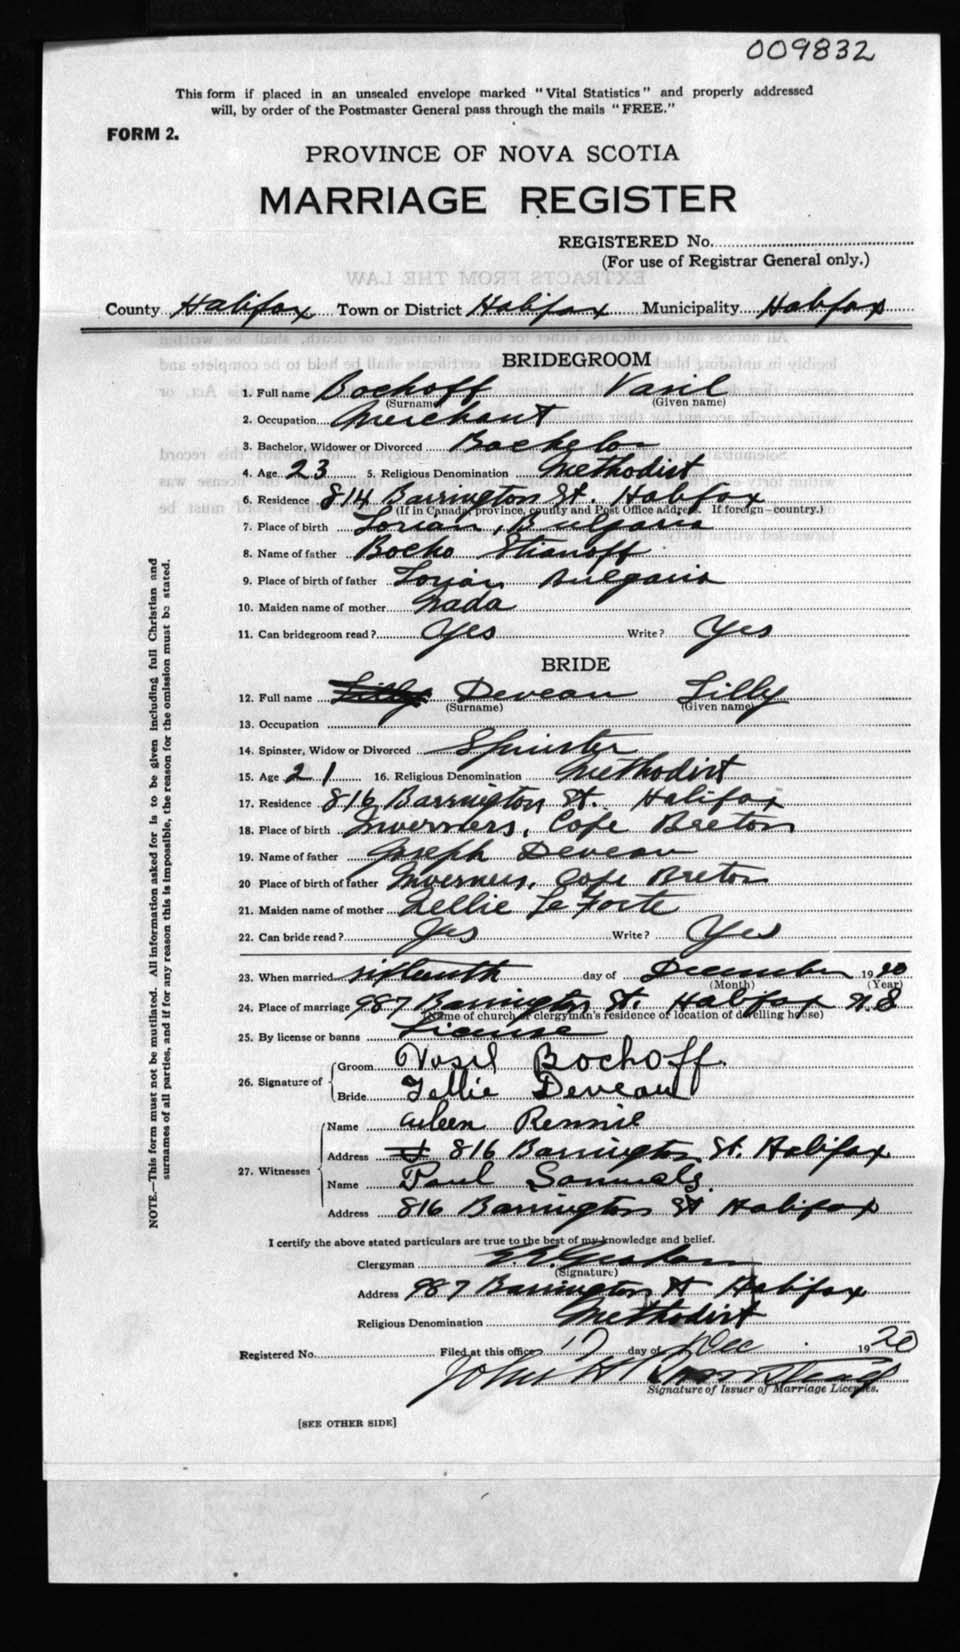 009832
This form if placed in an unsealed envelope marked "Vital Statistics" and properly addressed
will, by order of the Postmaster General pass through the mails "FREE."
FORM 2.
PROVINCE OF NOVA SCOTIA
MARRIAGE REGISTER
REGISTERED No.
(For use of Registrar General only.)
County Halifax Town or District Halifax Municipality Halifax
BRIDEGROOM
1. Full name Bochoff Vasil
(Surname) (Given name)
2. Occupation Merchant
3. Bachelor, Widower or Divorced Bachelor
4. Age 23 5. Religious Denomination Methodist
6. Residence 814 Barrington St. Halifax
(If in Canada, province, county and Post Office address. If foreign—country.)
7. Place of birth Bulgaria
8. Name of father Bocho Stianoff
9. Place of birth of father Bulgaria
10. Maiden name of mother Nada
11. Can bridegroom read? Yes Write? Yes
BRIDE
12. Full name Lilly Deveau Lilly
(Surname) (Given name)
13. Occupation
14. Spinster, Widow or Divorced Spinster
15. Age 21 16. Religious Denomination Methodist
17. Residence 816 Barrington St. Halifax
18. Place of birth Inverness, Cape Breton
19. Name of father Joseph Deveau
20 Place of birth of father Inverness, Cape Breton
21. Maiden name of mother Lellie Le Forte
22. Can bride read? Yes Write? Yes
23. When married sixteenth day of December 1920
(Month) (Year)
24. Place of marriage 987 Barrington St. Halifax N.S
(Name of church or clergyman's residence or location of dwelling house)
25. By license or banns License
26. Signature of Groom Vasil Bochoff
Bride Lellie Deveau
27. Witnesses Name Aileen Rennie
Address 816 Barrington St. Halifax
Name Paul Samuels
Address 816 Barrington St Halifax
I certify the above stated particulars are true to the best of my knowledge and belief.
Clergyman
(Signature)
Address 987 Barrington St Halifax
Religious Denomination Methodist
Registered No. Filed at this office 17 day of Dec 1920
John H
Signature of Issuer of Marriage Licenses.
[SEE OTHER SIDE]
NOTE.—This form must not be mutilated. All information asked for is to be given including full Christian and
surnames of all parties, and if for any reason this is impossible, the reason for the omission must be stated.